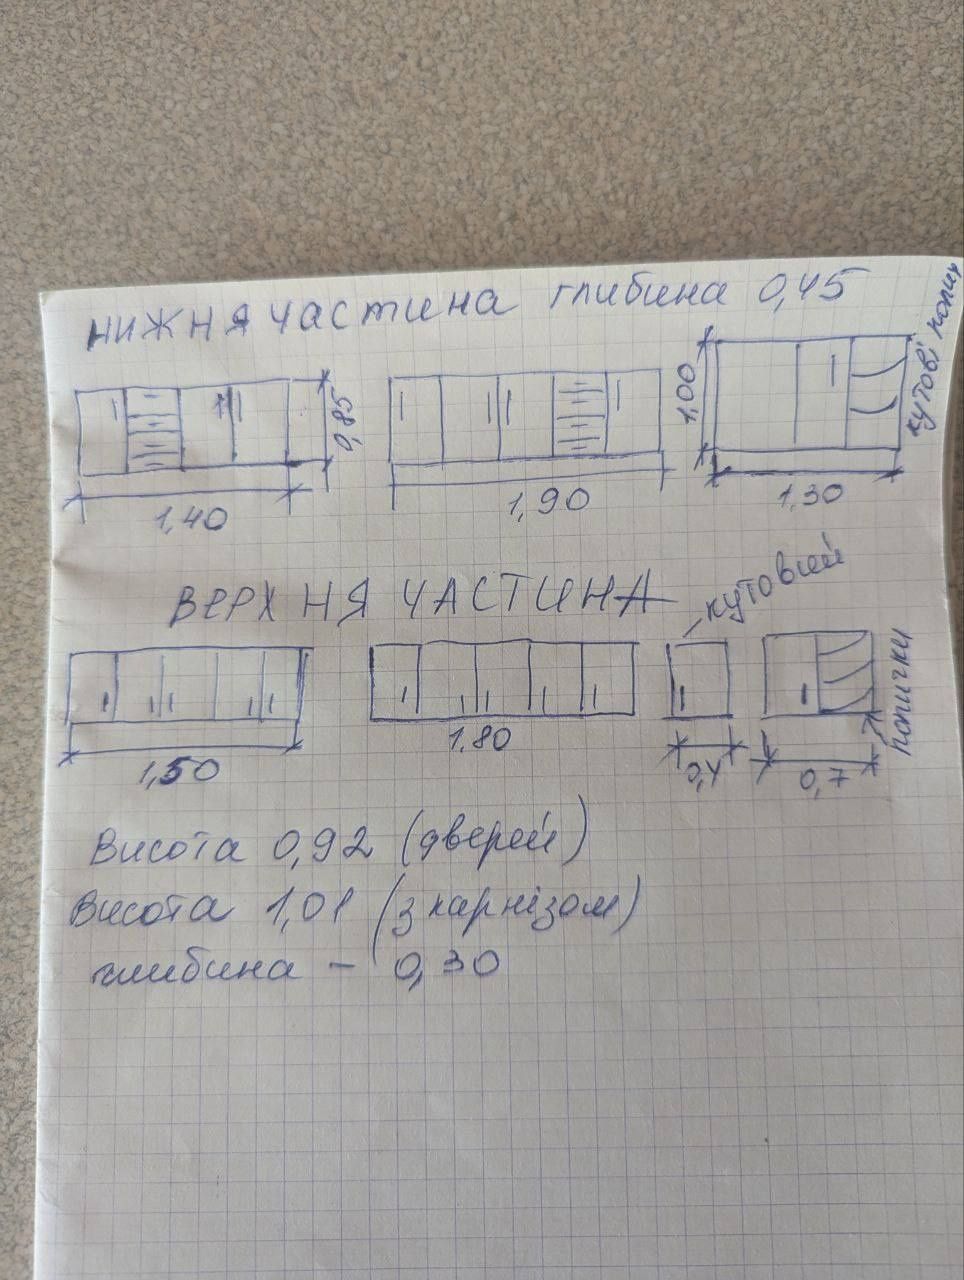 НИЖНЯ ЧАСТИНА глибина 0,45
0,85
1,00
кутові полич
1,40
1,90
1,30
ВЕРХНЯ ЧАСТИНА
кутовий
полички
1,50
1,80
0,4
0,7
Висота 0,92 (дверей)
Висота 1,01 (з карнізом)
глибина – 0,30